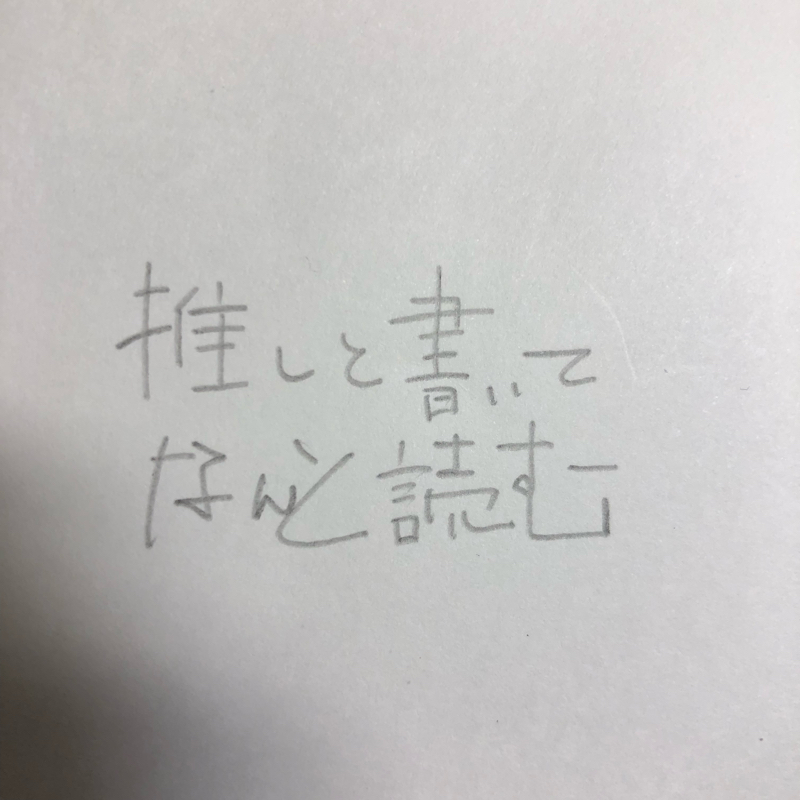 推しと書いて
なんと読む